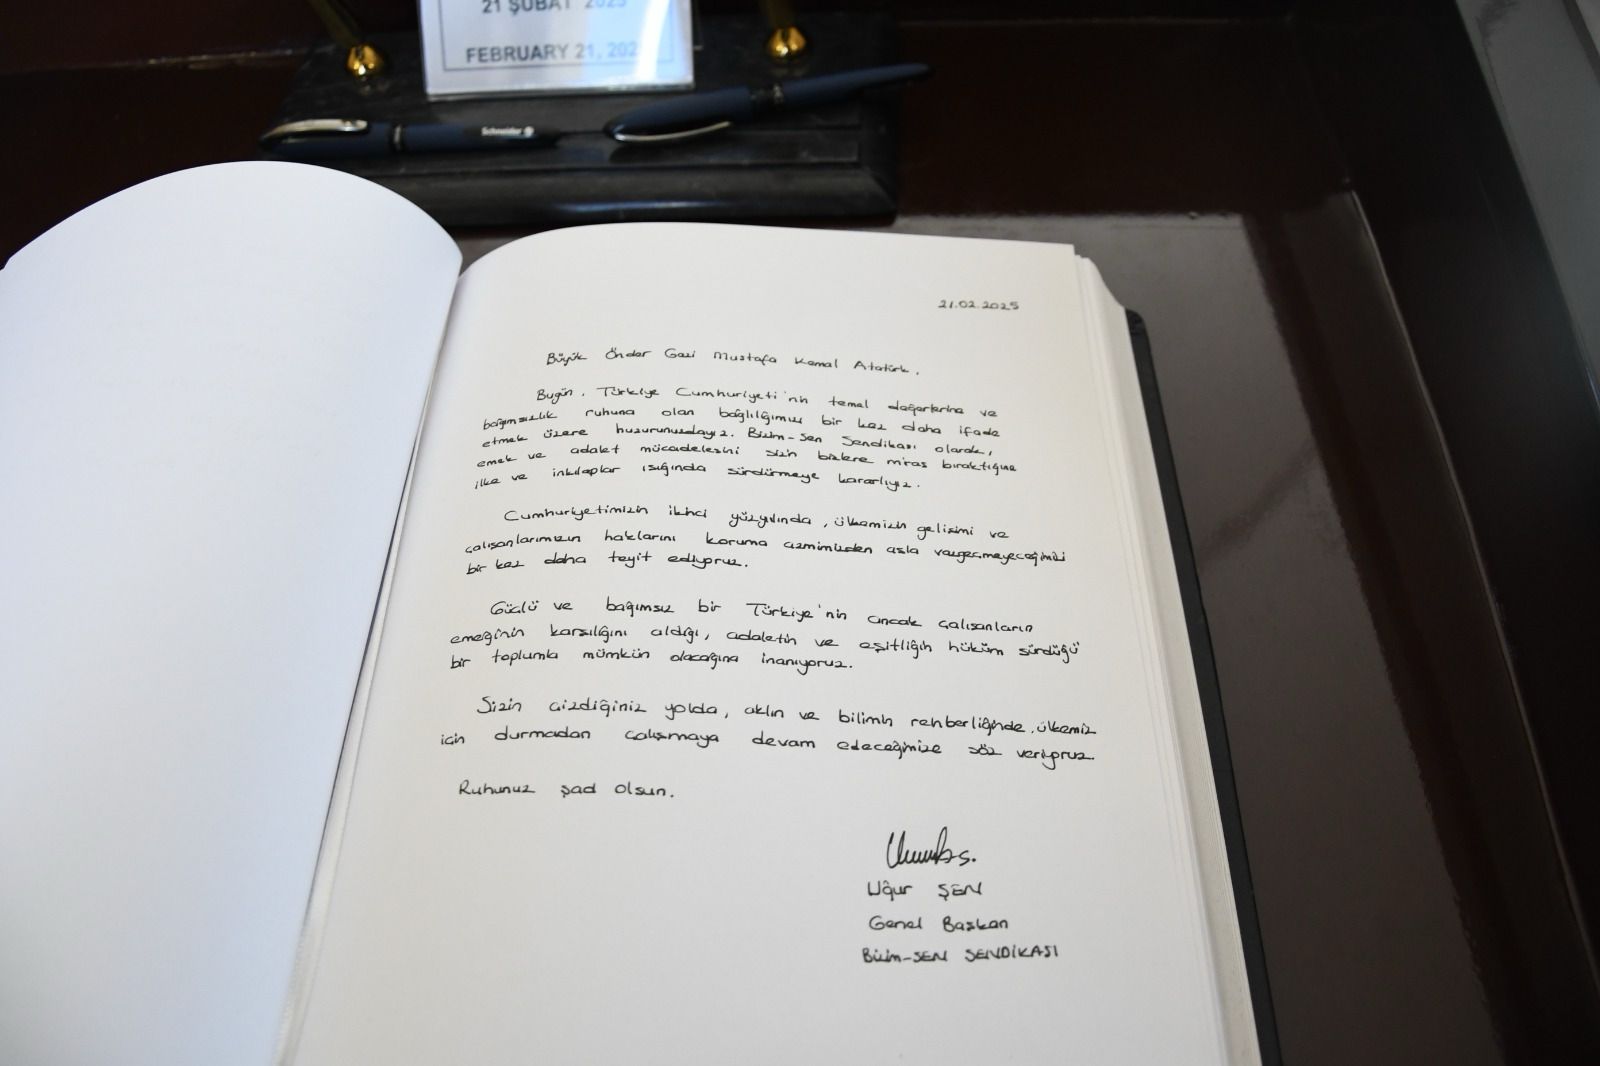 21 ŞUBAT 2025
FEBRUARY 21, 202
Schneider
21.02.2025
Büyük Önder Gazi Mustafa Kemal Atatürk,
Bugün, Türkiye Cumhuriyeti'nin temel değerlerine ve
bağımsızlık ruhuna olan bağlılığımızı bir kez daha ifade
etmek üzere huzurunuzdayız. Bizim-Sen Sendikası olarak,
emek ve adalet mücadelesini sizin bizlere miras bıraktığınız
ilke ve inkılaplar ışığında sürdürmeye kararlıyız.
Cumhuriyetimizin ikinci yüzyılında, ülkemizin gelişimi ve
çalışanlarımızın haklarını koruma azmimizden asla vazgeçmeyeceğimizi
bir kez daha teyit ediyoruz.
Güçlü ve bağımsız bir Türkiye'nin ancak çalışanların
emeğinin karşılığını aldığı, adaletin ve eşitliğin hüküm sürdüğü
bir toplumla mümkün olacağına inanıyoruz.
Sizin çizdiğiniz yolda, aklın ve bilimin rehberliğinde, ülkemiz
için durmadan çalışmaya devam edeceğimize söz veriyoruz.
Ruhunuz şad olsun.
Uğur ŞEN
Genel Başkan
Bizim-SEN SENDİKASI